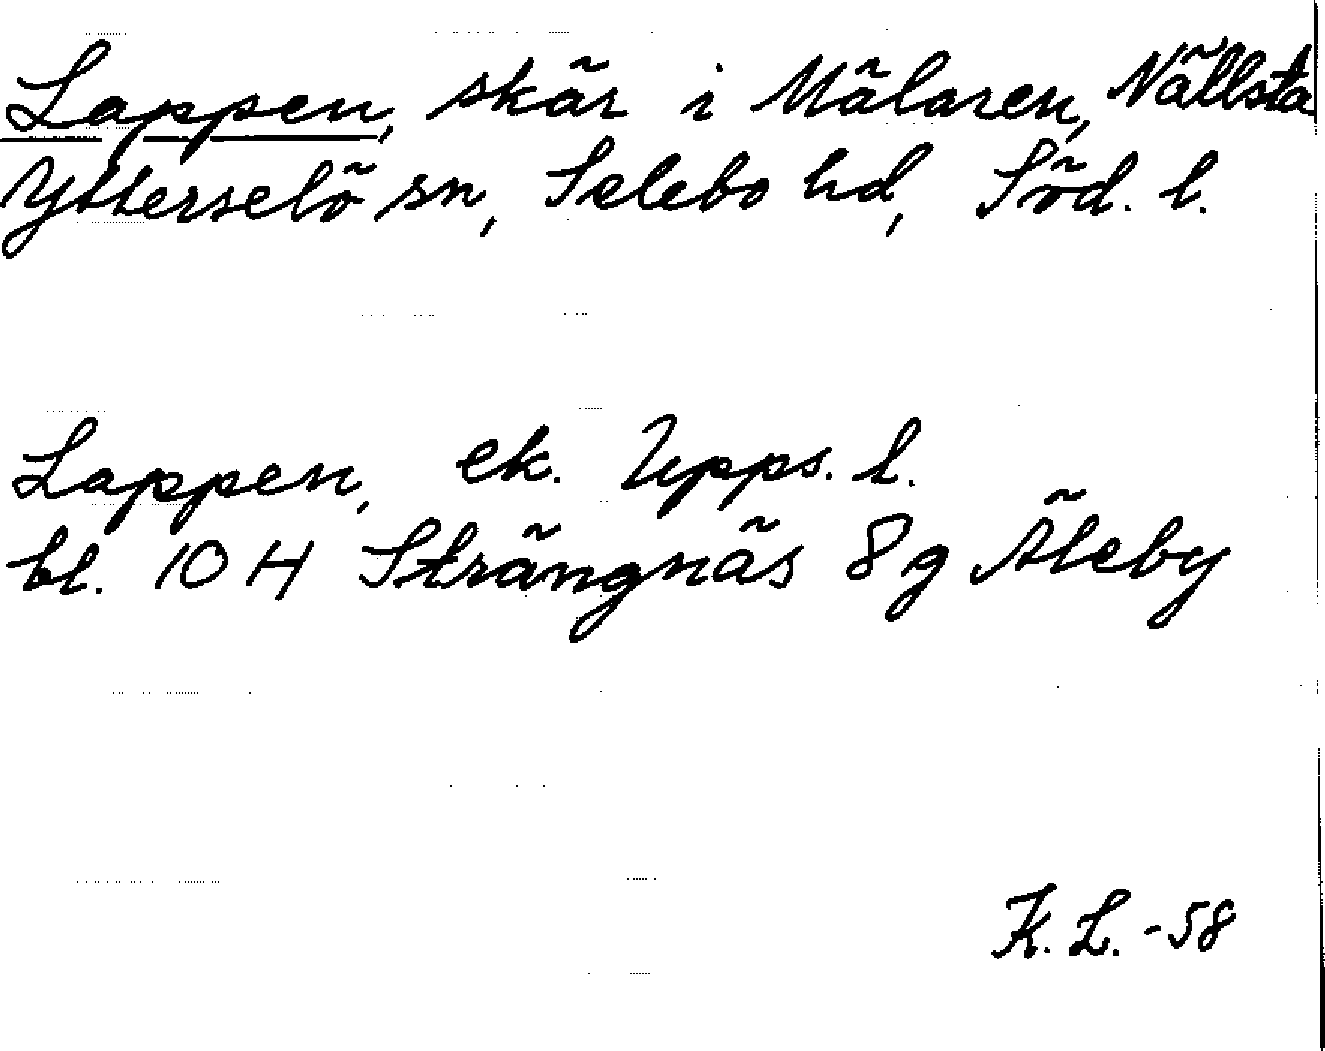 Lappen, skär i Mälaren, Nällsta
Ytterselö sn, Selebo hd, Söd. l.
Lappen, ek. Upps. l.
bl. 10 H Strängnäs 8g Äleby
K. L. -58